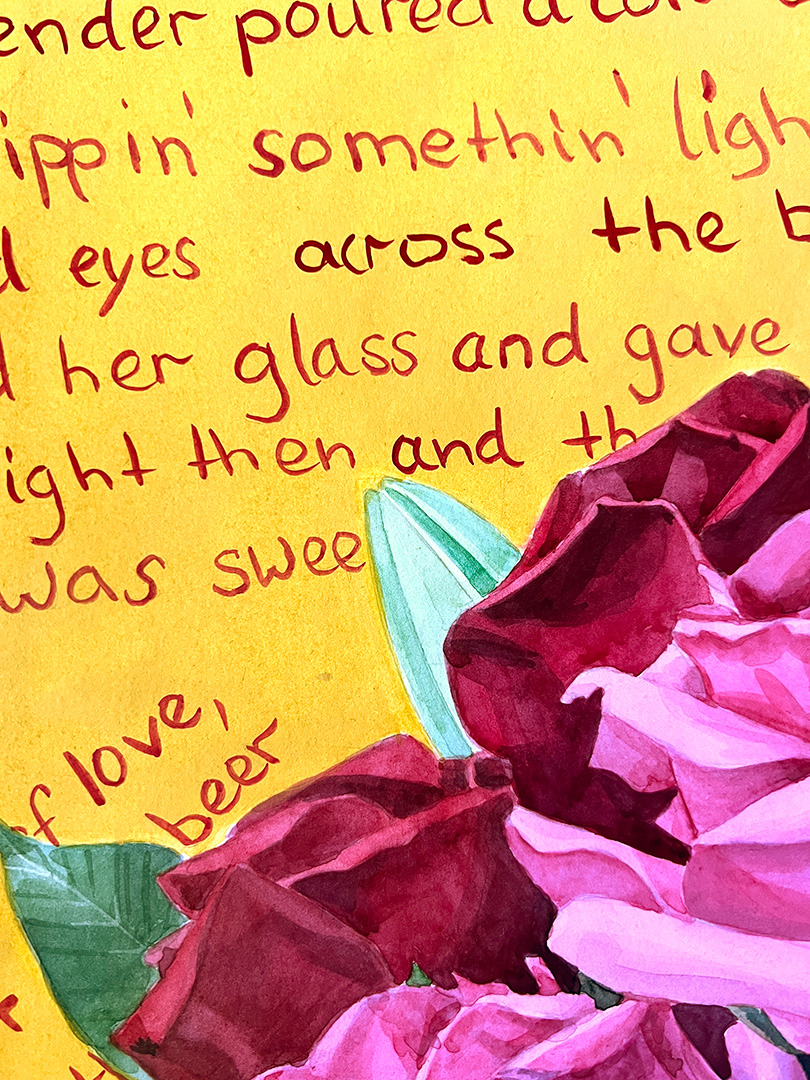 ender poured a
ippin' somethin' ligh
d eyes across the b
d her glass and gave
ight then and th
was swee
of love,
beer